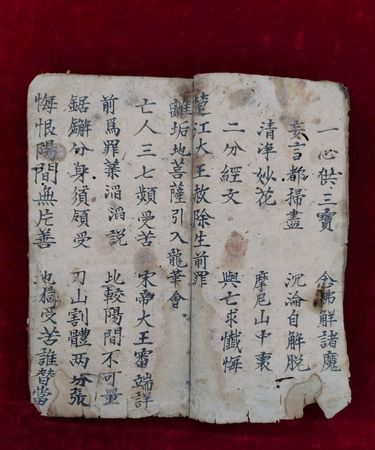 一心供三寶　念佛解諸魔
妄言都掃盡　沉淪自解脫
清净妙花　摩尼山中裏
二分經文　與亡求懺悔
楚江大王救除生前罪
離垢地菩薩引入龍華會
亡人三七頻受苦　宋帝大王審端詳
前爲罪業滔滔說　比較陽間不可量
鋸觧分身須領受　刀山割體两分張
悔恨陽間無片善　地獄受苦誰替當